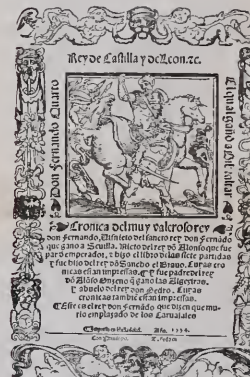 Rey de Castilla y de Leon. ⁊c.
Don Fernando Quarto
El que gano a Gibraltar
Cronica del muy valeroso rey
don Fernando, Visnieto del sancto rey don Fernãdo
que gano a Sevilla. Nieto del rey dõ Alonso que fue
par d emperador, y hizo el libro de las siete partidas
y fue hijo del rey dõ Sancho el Bravo, Cuyas cro
nicas estã impressas. Y fue padre del rey
dõ Alõso Onzeno q̃ gano las Algeziras.
Y abuelo del rey don Pedro. Cuyas
cronicas tambiẽ estan impressas.
Este es el rey don Fernãdo que dizen que mu
rio emplazado de los Carvajales
Año. 1554.
Con Privilegio.